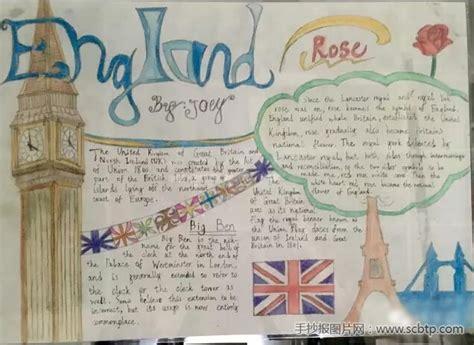 England
By: JOEY
Rose
Since the Lancaster royal and royal York
rose was on, rose became the symbol of England.
England unified whole Britain, established the United
Kingdom, rose gradually also became Britain's
national flower. The royal york defected by
Lancaster royal, but both sides through intermarriage
and reconciliation,
made one, red rose, white
white heart red rose became the national
flower of England.
The United Kingdom of Great Britain and
North Ireland (UK) was created by the Act
of Union 1800 and constitutes the greater
part of the British Isles, a group of
islands lying off the northwest
coast of Europe.
The United
Kingdom
of Great Britain
uses as its national
flag the royal banner known as
the Union Flag dates from the
union of Ireland and Great
Britain in 1801.
Big Ben
Big Ben is the nick-
name for the great bell of
the clock at the north end of
the Palace of Westminster in London,
and is generally extended to refer to
the clock or the clock tower as
well. Some believe this extension to be
incorrect, but its usage is now entirely
commonplace.
手抄报图片网：www.scbtp.com